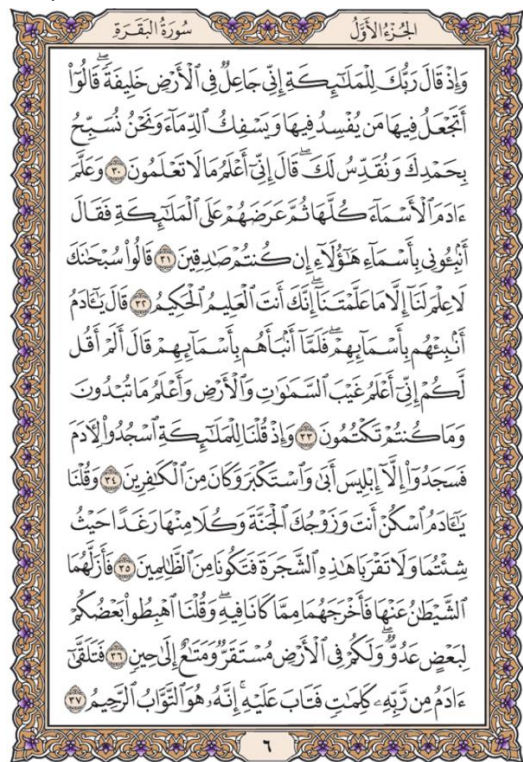 الجُزْءُ الأَوَّلُ
سُورَةُ البَقَرَةِ
وَإِذْ قَالَ رَبُّكَ لِلْمَلَٰٓئِكَةِ إِنِّي جَاعِلٌ فِي ٱلْأَرْضِ خَلِيفَةً ۖ قَالُوٓا۟
أَتَجْعَلُ فِيهَا مَن يُفْسِدُ فِيهَا وَيَسْفِكُ ٱلدِّمَآءَ وَنَحْنُ نُسَبِّحُ
بِحَمْدِكَ وَنُقَدِّسُ لَكَ ۖ قَالَ إِنِّيٓ أَعْلَمُ مَا لَا تَعْلَمُونَ ٣٠ وَعَلَّمَ
ءَادَمَ ٱلْأَسْمَآءَ كُلَّهَا ثُمَّ عَرَضَهُمْ عَلَى ٱلْمَلَٰٓئِكَةِ فَقَالَ
أَنۢبِـُٔونِي بِأَسْمَآءِ هَٰٓؤُلَآءِ إِن كُنتُمْ صَٰدِقِينَ ٣١ قَالُوا۟ سُبْحَٰنَكَ
لَا عِلْمَ لَنَآ إِلَّا مَا عَلَّمْتَنَآ ۖ إِنَّكَ أَنتَ ٱلْعَلِيمُ ٱلْحَكِيمُ ٣٢ قَالَ يَٰٓـَٔادَمُ
أَنۢبِئْهُم بِأَسْمَآئِهِمْ ۖ فَلَمَّآ أَنۢبَأَهُم بِأَسْمَآئِهِمْ قَالَ أَلَمْ أَقُل
لَّكُمْ إِنِّيٓ أَعْلَمُ غَيْبَ ٱلسَّمَٰوَٰتِ وَٱلْأَرْضِ وَأَعْلَمُ مَا تُبْدُونَ
وَمَا كُنتُمْ تَكْتُمُونَ ٣٣ وَإِذْ قُلْنَا لِلْمَلَٰٓئِكَةِ ٱسْجُدُوا۟ لِـَٔادَمَ
فَسَجَدُوٓا۟ إِلَّآ إِبْلِيسَ أَبَىٰ وَٱسْتَكْبَرَ وَكَانَ مِنَ ٱلْكَٰفِرِينَ ٣٤ وَقُلْنَا
يَٰٓـَٔادَمُ ٱسْكُنْ أَنتَ وَزَوْجُكَ ٱلْجَنَّةَ وَكُلَا مِنْهَا رَغَدًا حَيْثُ
شِئْتُمَا وَلَا تَقْرَبَا هَٰذِهِ ٱلشَّجَرَةَ فَتَكُونَا مِنَ ٱلظَّٰلِمِينَ ٣٥ فَأَزَلَّهُمَا
ٱلشَّيْطَٰنُ عَنْهَا فَأَخْرَجَهُمَا مِمَّا كَانَا فِيهِ ۖ وَقُلْنَا ٱهْبِطُوا۟ بَعْضُكُمْ
لِبَعْضٍ عَدُوٌّ ۖ وَلَكُمْ فِي ٱلْأَرْضِ مُسْتَقَرٌّ وَمَتَٰعٌ إِلَىٰ حِينٍ ٣٦ فَتَلَقَّىٰٓ
ءَادَمُ مِن رَّبِّهِۦ كَلِمَٰتٍ فَتَابَ عَلَيْهِ ۚ إِنَّهُۥ هُوَ ٱلتَّوَّابُ ٱلرَّحِيمُ ٣٧
٦